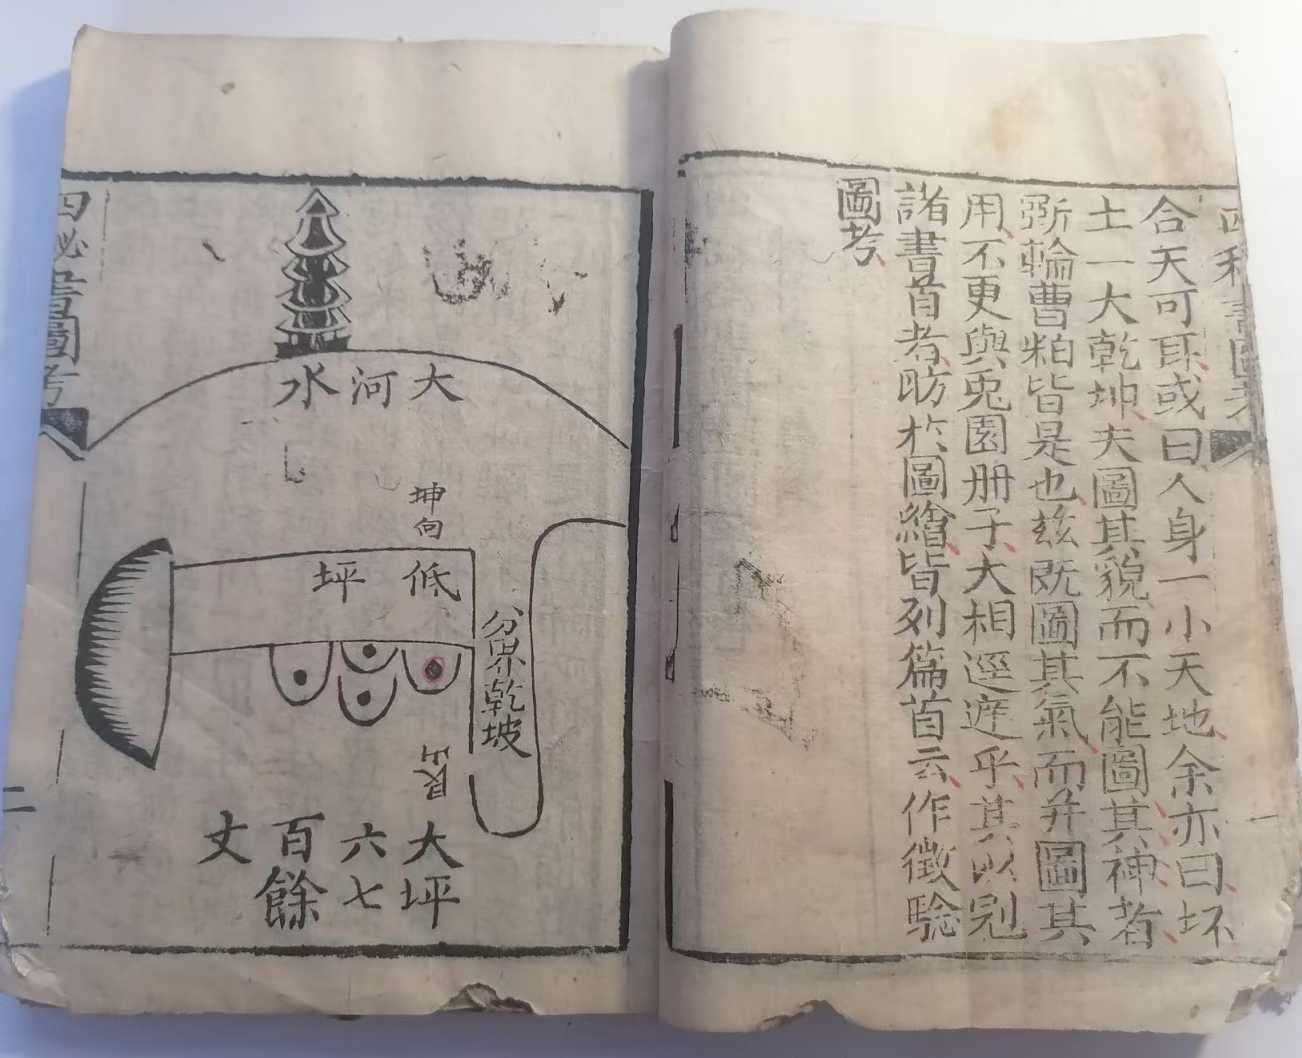 四秘書圖考
合天可耳或曰人身一小天地余亦曰坏
土一大乾坤夫圖其貌而不能圖其神者
斲輪曹粕皆是也茲既圖其氣而并圖其
用不更與兎園册子大相逕庭乎其以冠
諸書首者昉於圖繪皆列篇首云作徵驗
圖考
大河水
坤向
低坪
分界乾坡
艮山
大坪
六七
百餘
丈
四秘書圖考
二